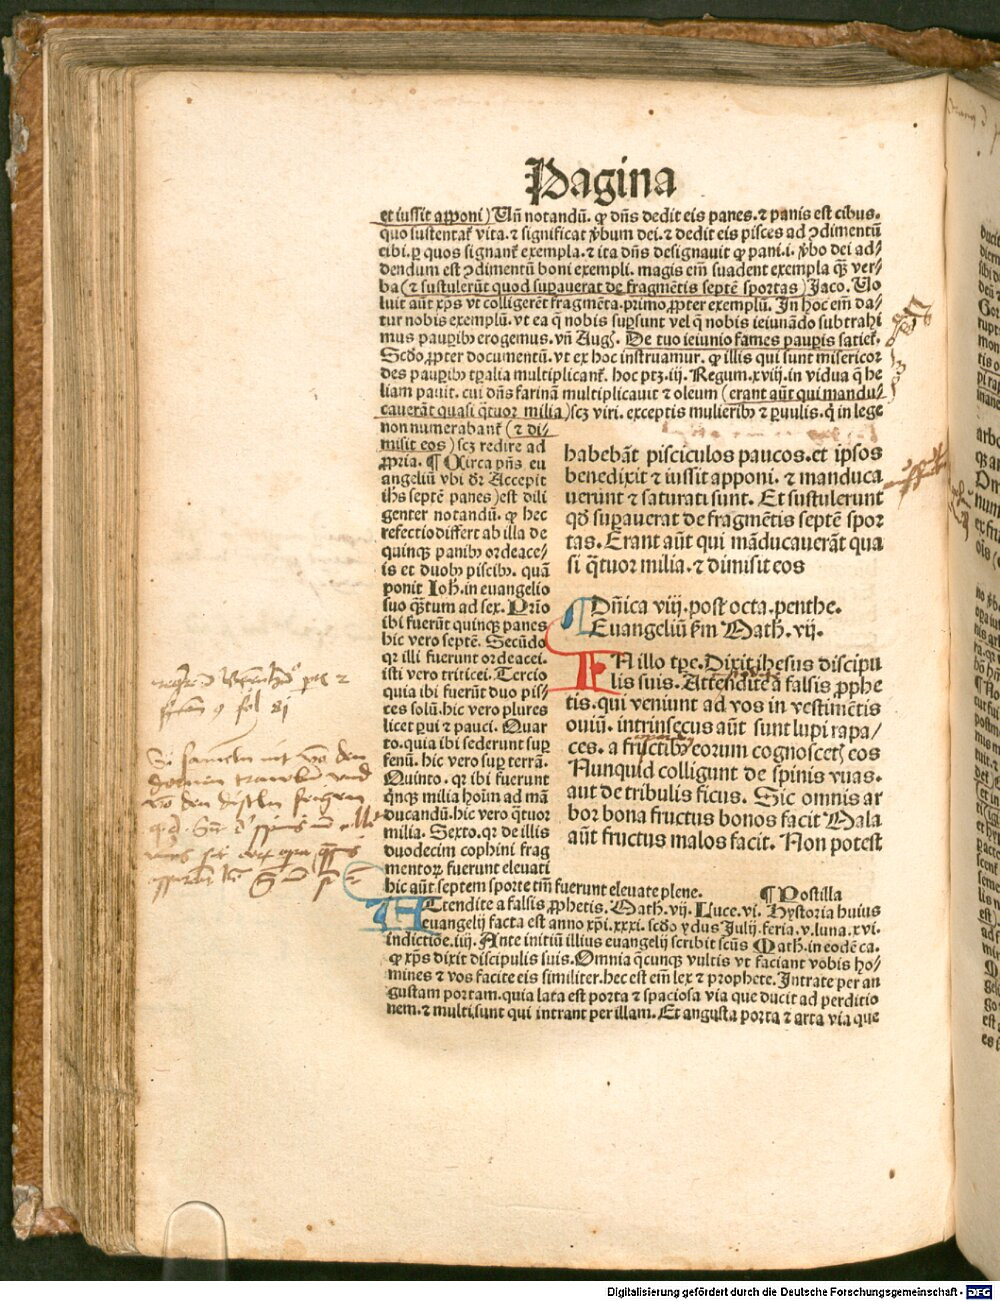 Pagina
et iussit apponi) Uñ notandū. ꝙ dñs dedit eis panes. ⁊ panis est cibus.
quo sustentat᷑ vita. ⁊ significat ꝟbum dei. ⁊ dedit eis pisces ad ꝯdimentū
cibi. ꝑ quos signant᷑ exempla. ⁊ ita dñs designauit ꝙ pani .i. ꝟbo dei ad/
dendum est ꝯdimentū boni exempli. magis em̄ suadent exempla q̄ꝫ ver/
ba (⁊ sustulerūt quod suꝑauerat de fragmētis septē sportas) Jaco. Uo
luit aūt xp̄s vt colligerēt fragmēta. primo ꝓpter exemplū. In hoc em̄ da/
tur nobis exemplū. vt ea q̄ nobis suꝑsunt vel q̄ nobis ieiunādo subtrahi
mus pauꝑibꝰ erogemus. vñ Aug. De tuo ieiunio fames pauꝑis saciet᷑.
Scd̄o ꝓpter documentū. vt ex hoc instruamur. ꝙ illis qui sunt misericor
des pauꝑibꝰ tꝑalia multiplicant᷑. hoc ptꝫ .iij. Regum .xviij. in vidua q̄ he
liam pauit. cui dñs farinā multiplicauit ⁊ oleum (erant aūt qui mandu/
cauerāt quasi q̄tuor milia) scꝫ viri. exceptis mulieribꝰ ⁊ ꝑuulis. q̄ in lege
non numerabant᷑ (⁊ di/
misit eos) scꝫ redire ad
ꝓpria. ¶ Circa pñs eu
angeliū vbi dr̄ Accepit
ih̄s septē panes) est dili
genter notandū. ꝙ hec
refectio differt ab illa de
quinqꝫ panibꝰ ordeace/
is et duobꝰ piscibꝰ. quā
ponit Joh. in euangelio
suo q̄ꝫtum ad sex. Primo
ibi fuerūt quinqꝫ panes
hic vero septē. Secūdo
qꝛ illi fuerunt ordeacei.
isti vero triticei. Tercio
quia ibi fuerūt duo pis/
ces solū. hic vero plures
licet ꝑui ⁊ pauci. Quar
to. quia ibi sederunt suꝑ
fenū. hic vero suꝑ terrā.
Quinto. qꝛ ibi fuerunt
q̄nqꝫ milia hoīm ad mā
ducandū. hic vero q̄tuor
milia. Sexto. qꝛ de illis
duodecim cophini frag
mentoꝝ fuerunt eleuati
hic aūt septem sporte tm̄ fuerunt eleuate plene. ¶ Postilla
habebāt pisciculos paucos. et ipsos
benedixit ⁊ iussit apponi. ⁊ manduca
uerunt ⁊ saturati sunt. Et sustulerunt
qd̄ suꝑauerat de fragmētis septē spor
tas. Erant aūt qui māducauerāt qua
si q̄tuor milia. ⁊ dimisit eos
Dñica viij. post octa. penthe.
Euangeliū ẜm Math. vij.
IN illo tpe. Dixit ihesus discipu
lis suis. Attendite a falsis ꝓphe
tis. qui veniunt ad vos in vestimētis
ouiū. intrinsecus aūt sunt lupi rapa/
ces. a fructibꝰ eorum cognoscetꝭ eos
Nunquid colligunt de spinis vuas.
aut de tribulis ficus. Sic omnis ar
bor bona fructus bonos facit Mala
aūt fructus malos facit. Non potest
ATtendite a falsis ꝓphetis. Math. vij. Luce. vi. Hystoria huius
euangelij facta est anno xp̄i .xxxi. scd̄o ydus Julij. feria .v. luna .xvi.
indictiōe .iiij. Ante initiū illius euangelij scribit scūs Math. in eodē ca.
ꝙ xp̄s dixit discipulis suis. Omnia q̄cunqꝫ vultis vt faciant vobis ho/
mines ⁊ vos facite eis similiter. hec est em̄ lex ⁊ prophete. Intrate per an
gustam portam. quia lata est porta ⁊ spaciosa via que ducit ad perditio
nem. ⁊ multi sunt qui intrant per illam. Et angusta porta ⁊ arta via que
Digitalisierung gefördert durch die Deutsche Forschungsgemeinschaft - DFG